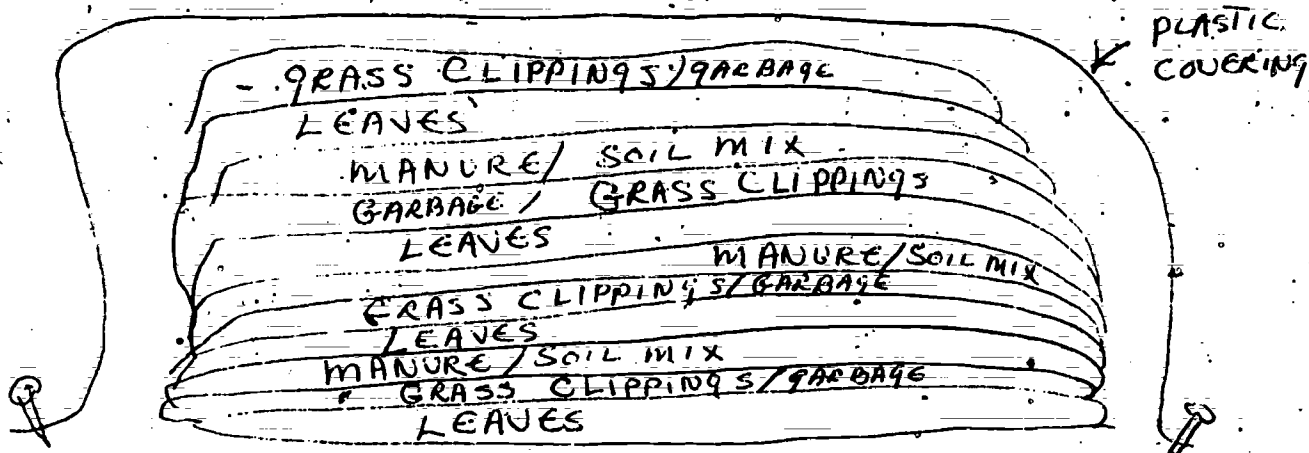 PLASTIC
COVERING
GRASS CLIPPINGS/GARBAGE
LEAVES
MANURE/ SOIL MIX
GARBAGE / GRASS CLIPPINGS
LEAVES
MANURE/SOIL MIX
GRASS CLIPPINGS/GARBAGE
LEAVES
MANURE/SOIL MIX
GRASS CLIPPINGS/GARBAGE
LEAVES